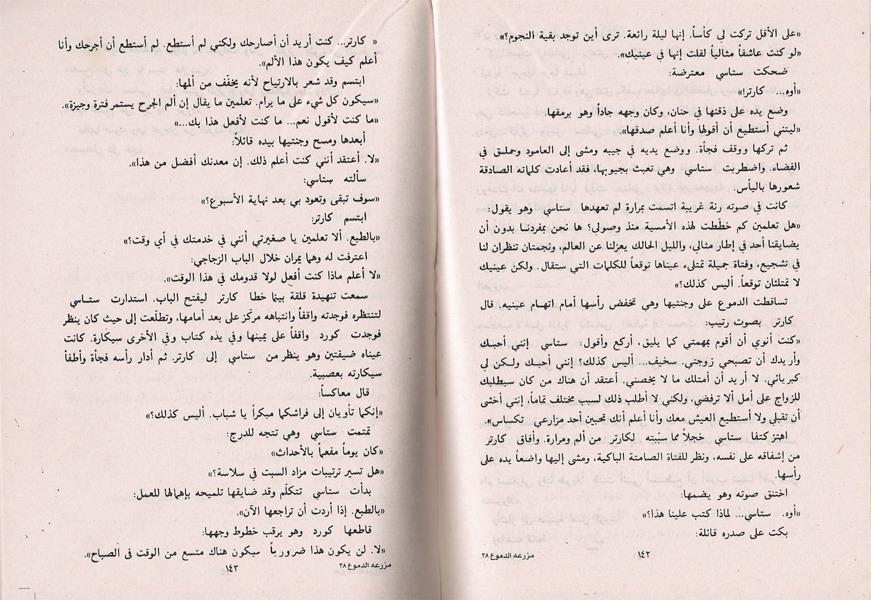 «على الأقل تركت لي كأساً. إنها ليلة رائعة. ترى أين توجد بقية النجوم؟»
«لو كنت عاشقاً مثالياً لقلت إنها في عينيك».
ضحكت ستاسي معترضة:
«أوه... كارتر!»
وضع يده على ذقنها في حنان، وكان وجهه جاداً وهو يرمقها.
«ليتني أستطيع أن أقولها وأنا أعلم صدقها».
ثم تركها ووقف فجأة. ووضع يديه في جيبه ومشى إلى العامود وحملق في
الفضاء. واضطربت ستاسي وهي تعبث بجيوبها، فقد أعادت كلماته الصادقة
شعورها باليأس.
كانت في صوته رنة غريبة اتسمت بمرارة لم تعهدها ستاسي وهو يقول:
«هل تعلمين كم خططت لهذه الأمسية منذ وصولي؟ ها نحن بمفردنا بدون أن
يضايقنا أحد في إطار مثالي، والليل الحالك يعزلنا عن العالم، ونجمتان تنظران لنا
في تشجيع، وفتاة جميلة تمتلىء عيناها توقعاً للكلمات التي ستقال. ولكن عينيك
لا تمتلئان توقعاً. أليس كذلك؟»
تساقطت الدموع على وجنتيها وهي تخفض رأسها أمام اتهام عينيه. قال
كارتر بصوت رتيب:
«كنت أنوي أن أقوم بمهمتي كما يليق، أركع وأقول: ستاسي إنني أحبك
وأريدك أن تصبحي زوجتي. سخيف... أليس كذلك؟ إنني أحبك ولكن لي
كبريائي. لا أريد أن أمتلك ما لا يخصني. أعتقد أن هناك من كان سيطلبك
للزواج على أمل ألا ترفضي، ولكني لا أطلب ذلك لسبب مختلف تماماً، إنني أخشى
أن تقبلي ولا أستطيع العيش معك وأنا أعلم أنك تحبين أحد مزارعي تكساس».
اهتز كتفا ستاسي خجلاً مما سببته لكارتر من ألم ومرارة. وأفاق كارتر
من إشفاقه على نفسه، ونظر للفتاة الصامتة الباكية، ومشى إليها واضعاً يده على
رأسها.
اختنق صوته وهو يضمها:
«أوه. ستاسي... لماذا كتب علينا هذا؟»
بكت على صدره قائلة:
١٤٢
مزرعه الدموع ٢٨
« كارتر... كنت أريد أن أصارحك ولكني لم أستطع. لم أستطع أن أجرحك وأنا
أعلم كيف يكون هذا الألم».
ابتسم وقد شعر بالارتياح لأنه يخفف من ألمها:
«سيكون كل شيء على ما يرام. تعلمين ما يقال إن ألم الجرح يستمر فترة وجيزة».
«ما كنت لأقول نعم... ما كنت لأفعل هذا بك...»
أبعدها ومسح وجنتيها بيده قائلاً:
«لا. أعتقد أنني كنت أعلم ذلك. إن معدنك أفضل من هذا».
سألته ستاسي:
«سوف تبقى وتعود بي بعد نهاية الأسبوع؟»
ابتسم كارتر:
«بالطبع. ألا تعلمين يا صغيرتي أنني في خدمتك في أي وقت؟»
اعترفت له وهما يمران خلال الباب الزجاجي:
«لا أعلم ماذا كنت أفعل لولا قدومك في هذا الوقت».
سمعت تنهيدة قلقة بينما خطا كارتر ليفتح الباب. استدارت ستاسي
لتنتظره فوجدته واقفاً وانتباهه مركز على بعد أمامها، وتطلعت إلى حيث كان ينظر
فوجدت كورد واقفاً على يمينها وفي يده كتاب وفي الأخرى سيكارة. كانت
عيناه ضيقتين وهو ينظر من ستاسي إلى كارتر. ثم أدار رأسه فجأة وأطفأ
سيكارته بعصبية.
قال معاكساً:
«إنكما تأويان إلى فراشكما مبكراً يا شباب. أليس كذلك؟»
تمتمت ستاسي وهي تتجه للدرج:
«كان يوماً مفعماً بالأحداث»
«هل تسير ترتيبات مزاد السبت في سلاسة؟»
بدأت ستاسي تتكلم وقد ضايقها تلميحه بإهمالها للعمل:
«بالطبع. إذا أردت أن تراجعها الآن».
قاطعها كورد وهو يرقب خطوط وجهها:
«لا. لن يكون هذا ضرورياً سيكون هناك متسع من الوقت في الصباح».
١٤٣
مزرعه الدموع ٢٨